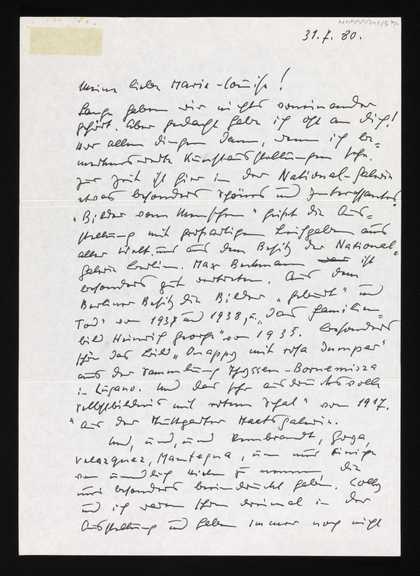 31.7.80.
Meine liebe Marie-Louise!
Lange haben wir nichts voneinander
gehört. Aber gedacht habe ich oft an dich!
Vor allen dingen dann, wenn ich be-
merkenswerte Kunstausstellungen sehe.
zur Zeit ist hier in der National-Galerie
etwas besonders schönes und Interessantes
"Bilder vom Menschen" heißt die Aus-
stellung mit großartigen Leihgaben aus
aller Welt und aus dem Besitz der National-
Galerie Berlin. Max Beckmann ist
besonders gut vertreten. Aus dem
Berliner Besitz die Bilder "Geburt" und
Tod" von 1937 und 1938, "das Familien-
bild Heinrich George" von 1935. besonders
schön das Bild "Quappi mit rosa Jumper"
aus der Sammlung Thyssen-Bornemisza
in Lugano. Und das sehr ausdrucksvolle
Selbstbildnis mit rotem Schal" von 1917.
" aus der Stuttgarter Staatsgalerie.
Und, und, und Rembrandt, Goya,
Velazquez, Mantegna, um nur Einige
von unendlich vielen zu nennen, die
uns besonders beeindruckt haben. Colly
und ich waren schon dreimal in der
Ausstellung und haben immer noch nicht